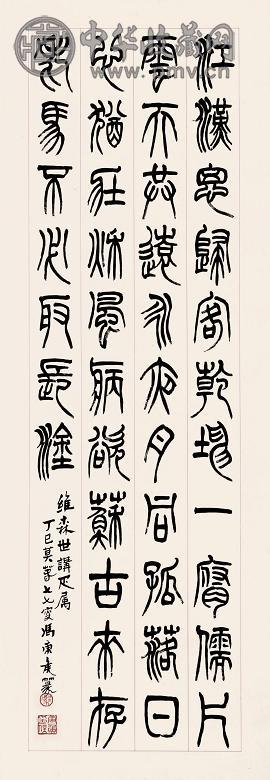 江漢思歸客乾坤一腐儒片
雲天共遠永夜月同孤落日
心猶壯秋風病欲蘇古來存
老馬不必取長塗
維森世講正属
丁巳莫春七七叟馮康矦篆
中华收藏网